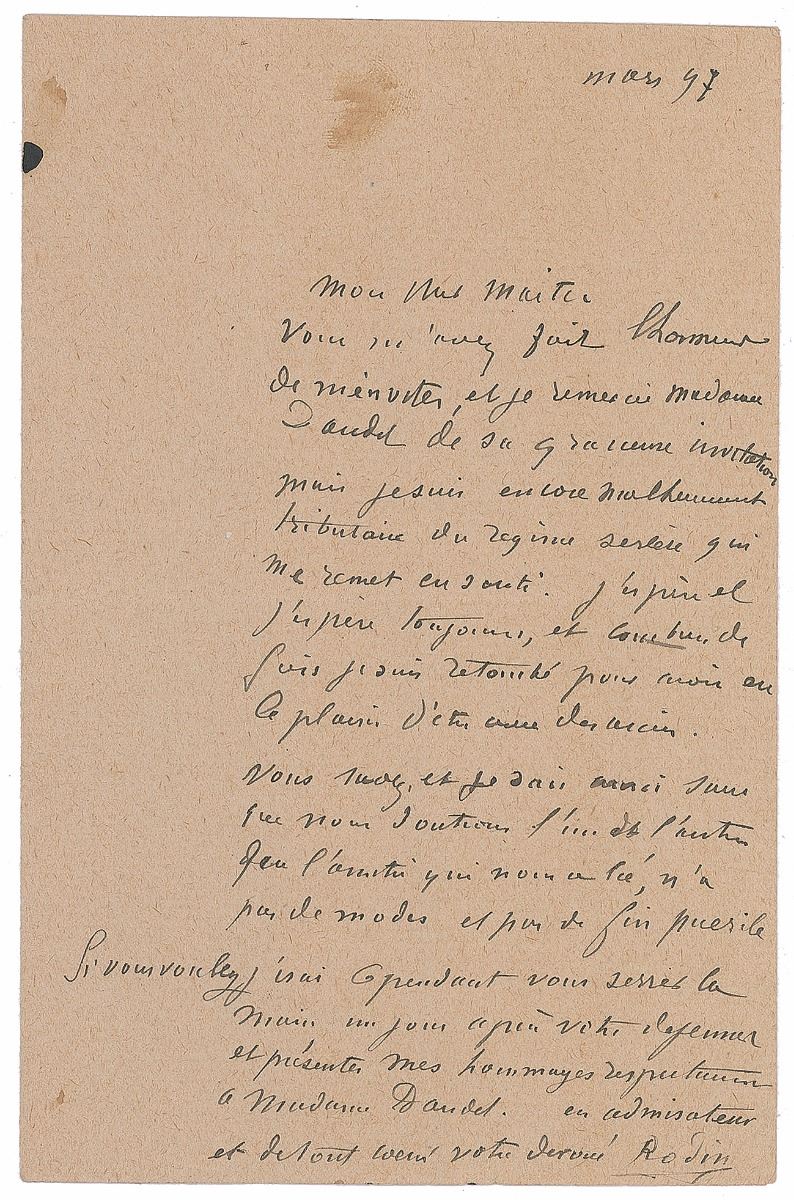 mars 97
Mon cher Maitre
Vous m'avez fait l'honneur
de m'inviter, et je remercie Madame
Daudet de sa gracieuse invitation
mais je suis encore malheureusement
tributaire du regime sevère qui
me remet en santé. J'espère et
j'espère toujours, et combien de
fois je suis retombé pour avoir eu
le plaisir d'être
Vous savez, et je sais aussi sans
que nous doutions l'un de l'autre
que l'amitié qui nous a lié, n'a
pas de modes et pas de fin puerile
Si vous voulez j'irai cependant vous serrer la
main un jour après votre dejeuner
et présenter mes hommages respectueux
a Madame Daudet. en admirateur
et de tout coeur votre devoué Rodin